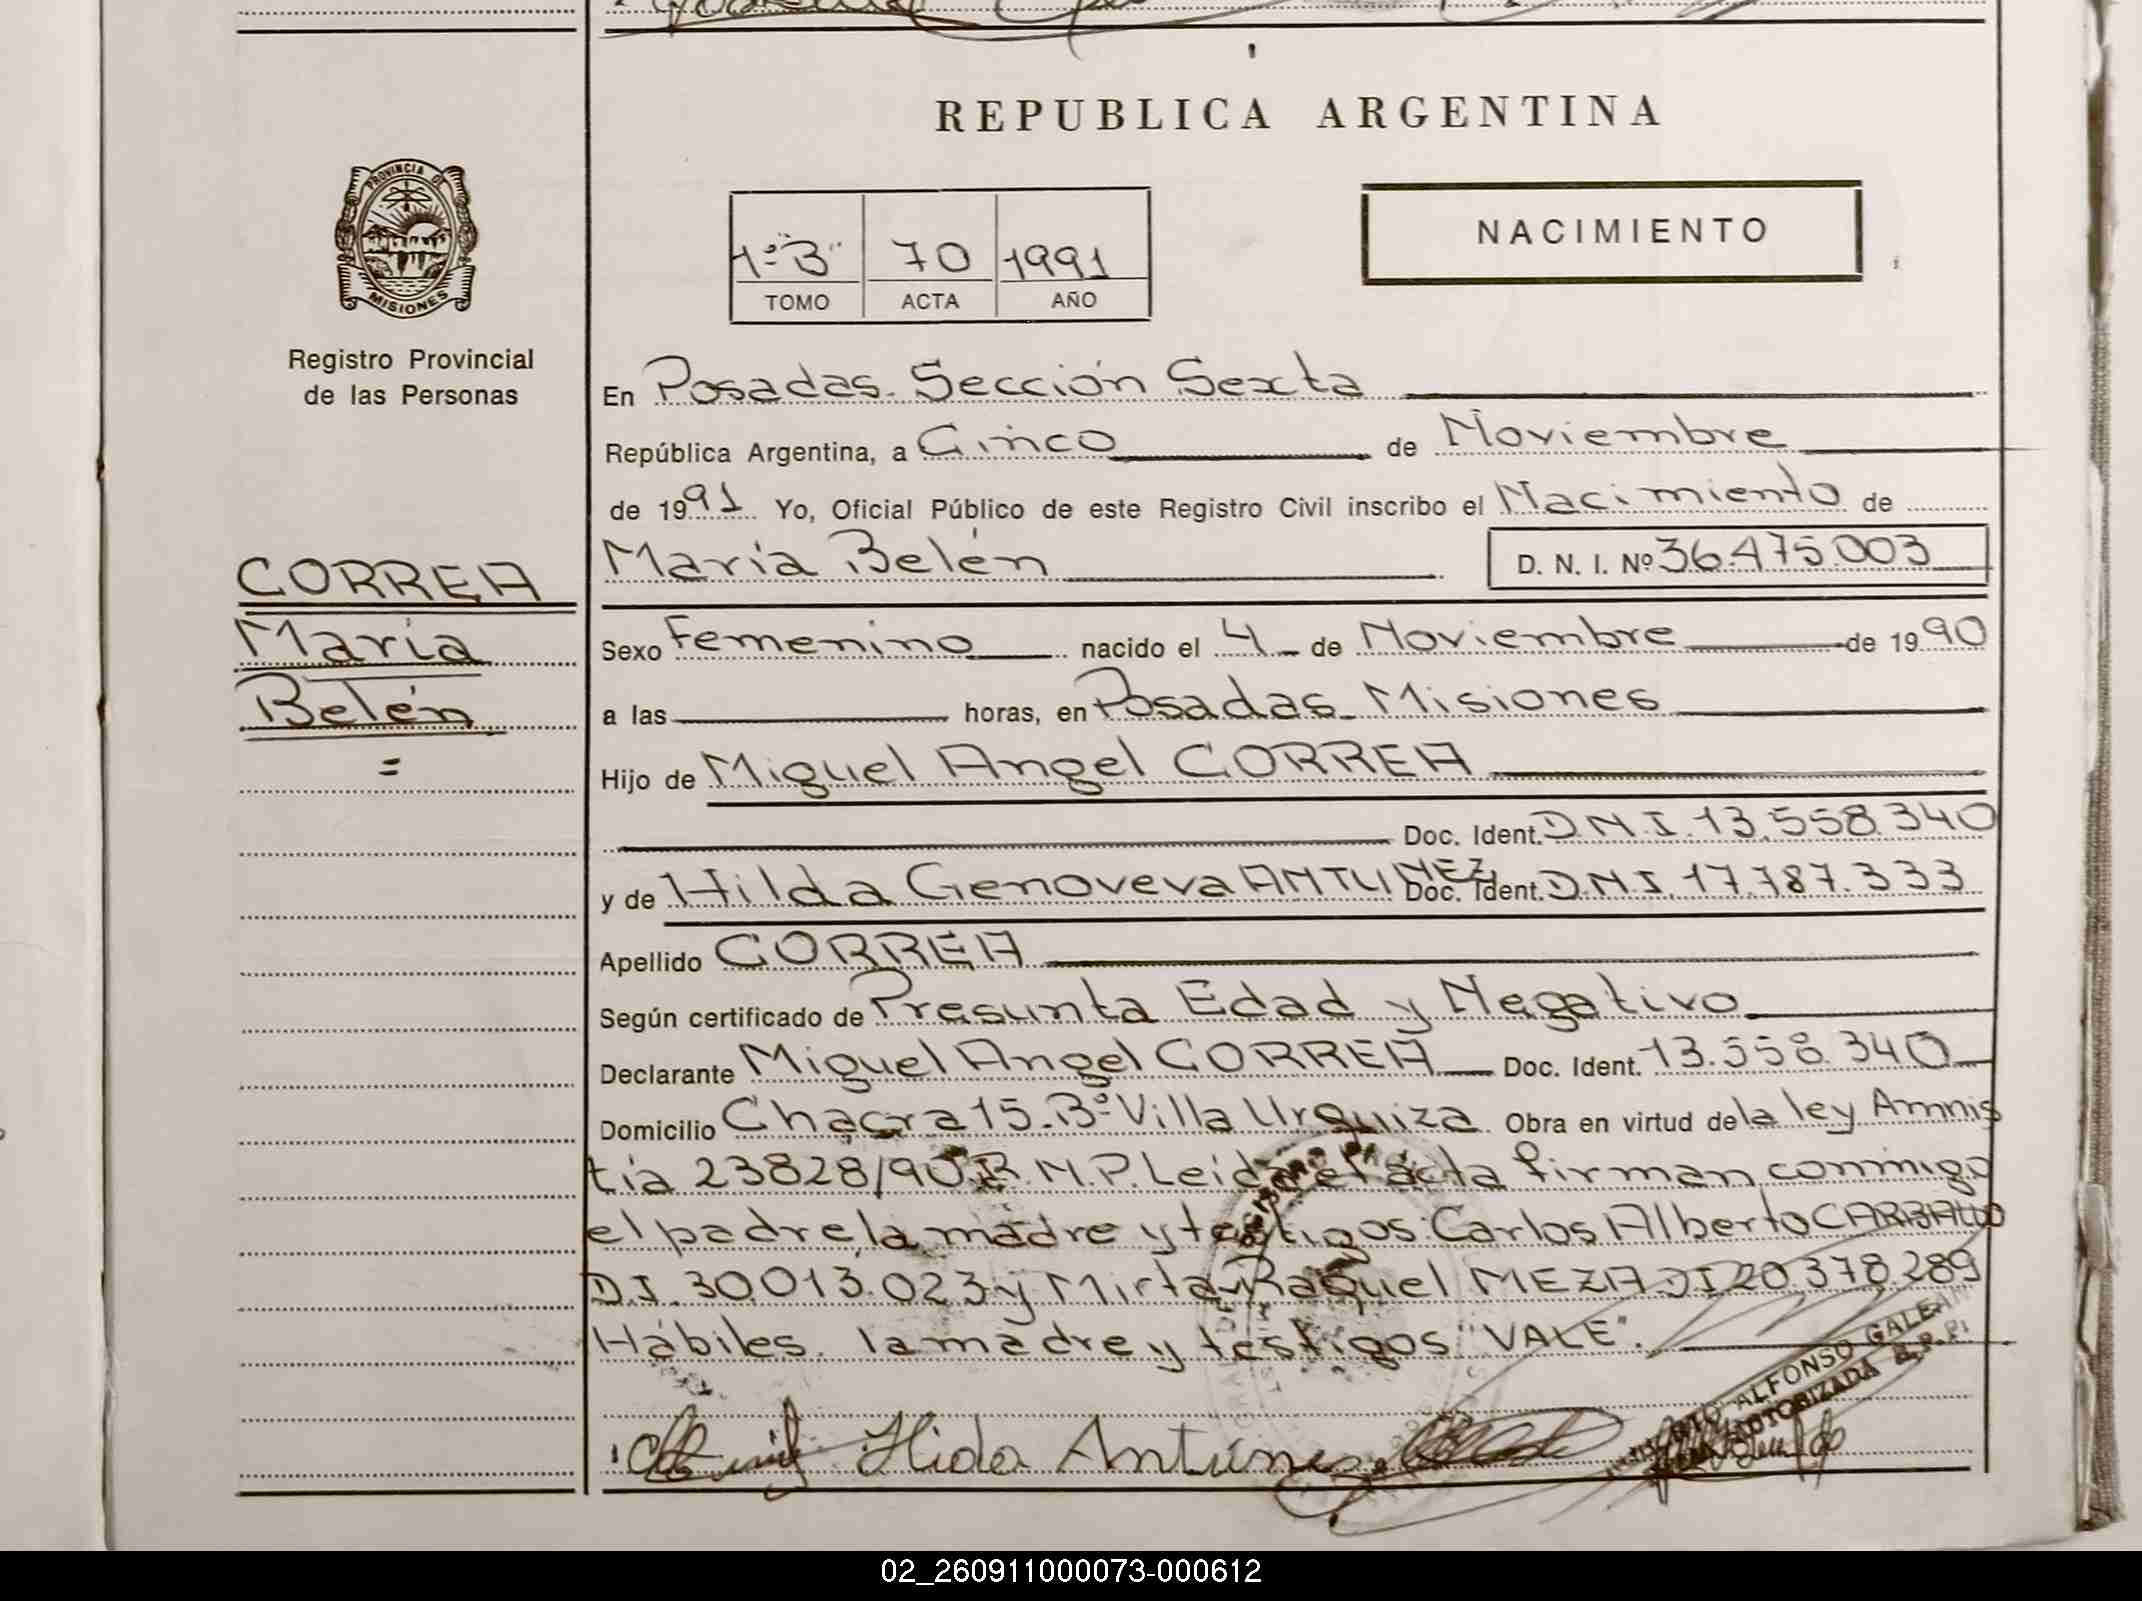 REPUBLICA ARGENTINA
PROVINCIA DE
MISIONES
Registro Provincial
de las Personas
1º "B" 70 1991
TOMO ACTA AÑO
NACIMIENTO
En Posadas. Sección Sexta
República Argentina, a Cinco de Noviembre
de 1991 Yo, Oficial Público de este Registro Civil inscribo el Nacimiento de
CORREA
María
Belén
María Belén D. N. I. Nº 36.475.003
Sexo Femenino nacido el 4 de Noviembre de 1990
a las horas, en Posadas. Misiones
Hijo de Miguel Angel CORREA
Doc. Ident. D.N.I. 13.558.340
y de Hilda Genoveva ANTUNEZ Doc. Ident. D.N.I. 17.787.333
Apellido CORREA
Según certificado de Presunta Edad y Negativo
Declarante Miguel Angel CORREA Doc. Ident. 13.558.340
Domicilio Chacra 15. Bº Villa Urquiza Obra en virtud de la ley Amnis
tía 23828/90. R.N.P. Leida el acta firman conmigo
el padre, la madre y testigos: Carlos Alberto CARBALLO
D.I. 30.013.023 y Mirta Raquel MEZA DI 20.378.289
Hábiles. la madre y testigos "VALE".
ALFONSO GALE
AUTORIZADA
Hida Antúnes
02_260911000073-000612